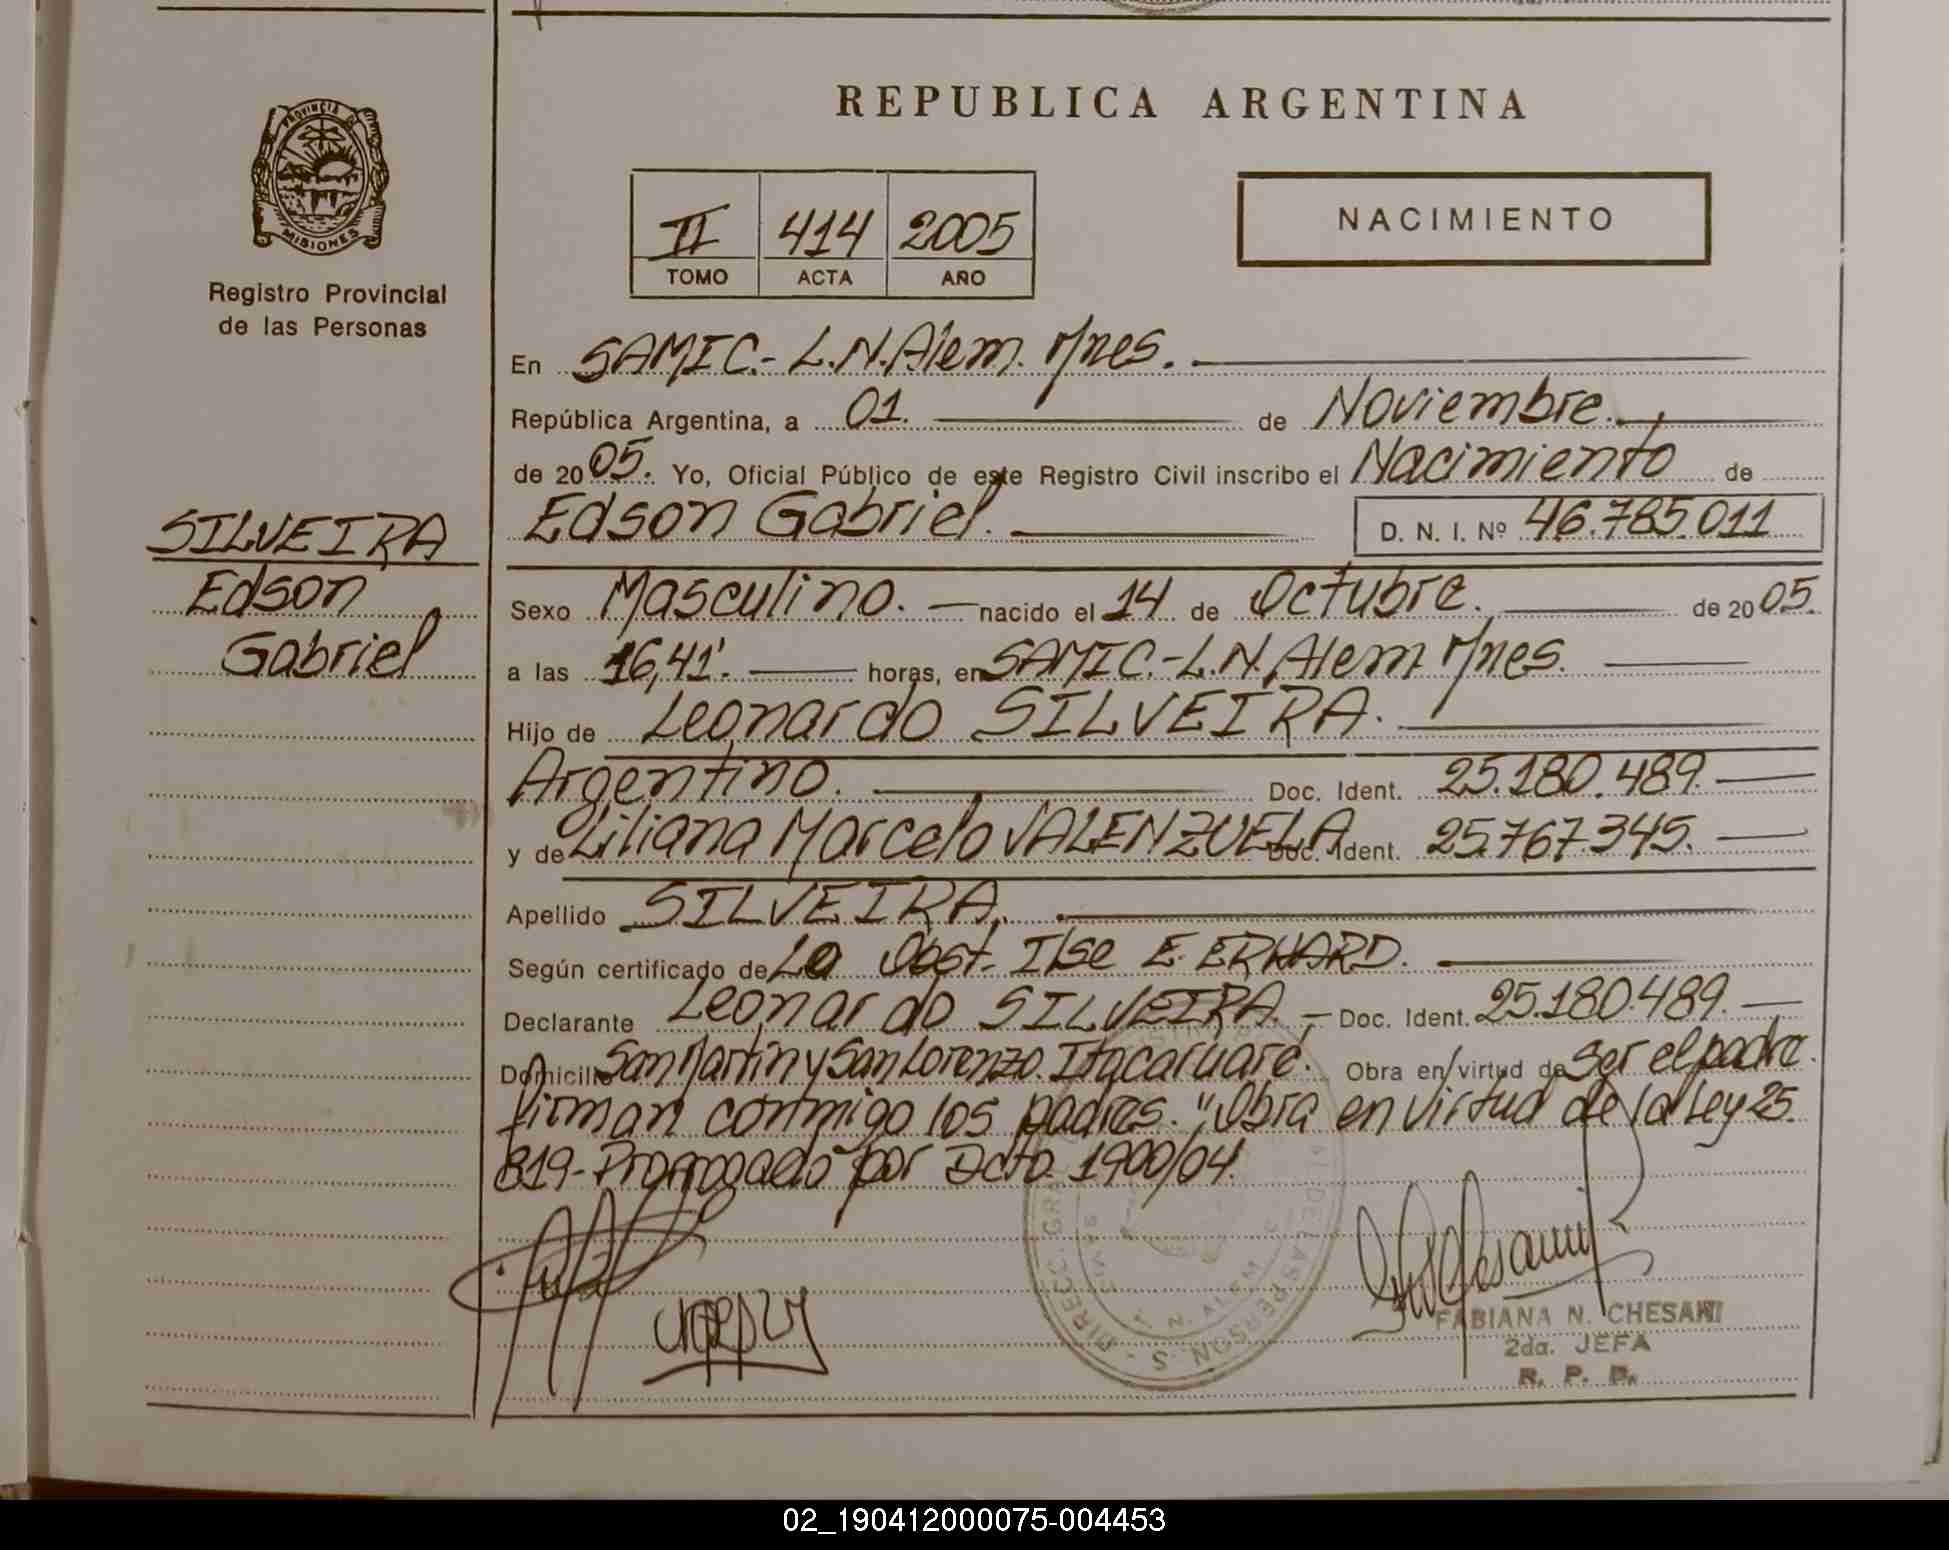 REPUBLICA ARGENTINA
PROVINCIA DE MISIONES
Registro Provincial
de las Personas
II 414 2005
TOMO ACTA AÑO
NACIMIENTO
En SAMIC.- L.N.Alem. M/nes.
República Argentina, a 01. de Noviembre.
de 2005. Yo, Oficial Público de este Registro Civil inscribo el Nacimiento de
Edson Gabriel. D. N. I. Nº 46.785.011
SILVEIRA
Edson
Gabriel
Sexo Masculino. nacido el 14 de Octubre. de 2005.
a las 16,41'. horas, en SAMIC.-L.N.Alem M/nes.
Hijo de Leonardo SILVEIRA.
Argentino. Doc. Ident. 25.180.489.
y de Liliana Marcela VALENZUELA Doc. Ident. 25.767.345.
Apellido SILVEIRA.
Según certificado de La Obst. Ilse E. ERHARD.
Declarante Leonardo SILVEIRA. Doc. Ident. 25.180.489.
Domicilio San Martin y San Lorenzo. Itacaruaré. Obra en virtud de Ser el padre.
firman conmigo los padres. "Obra en virtud de la Ley 25.
819- Prorrogado por Dcto. 1900/04.
FABIANA N. CHESANI
2da. JEFA
R. P. P.
02_190412000075-004453